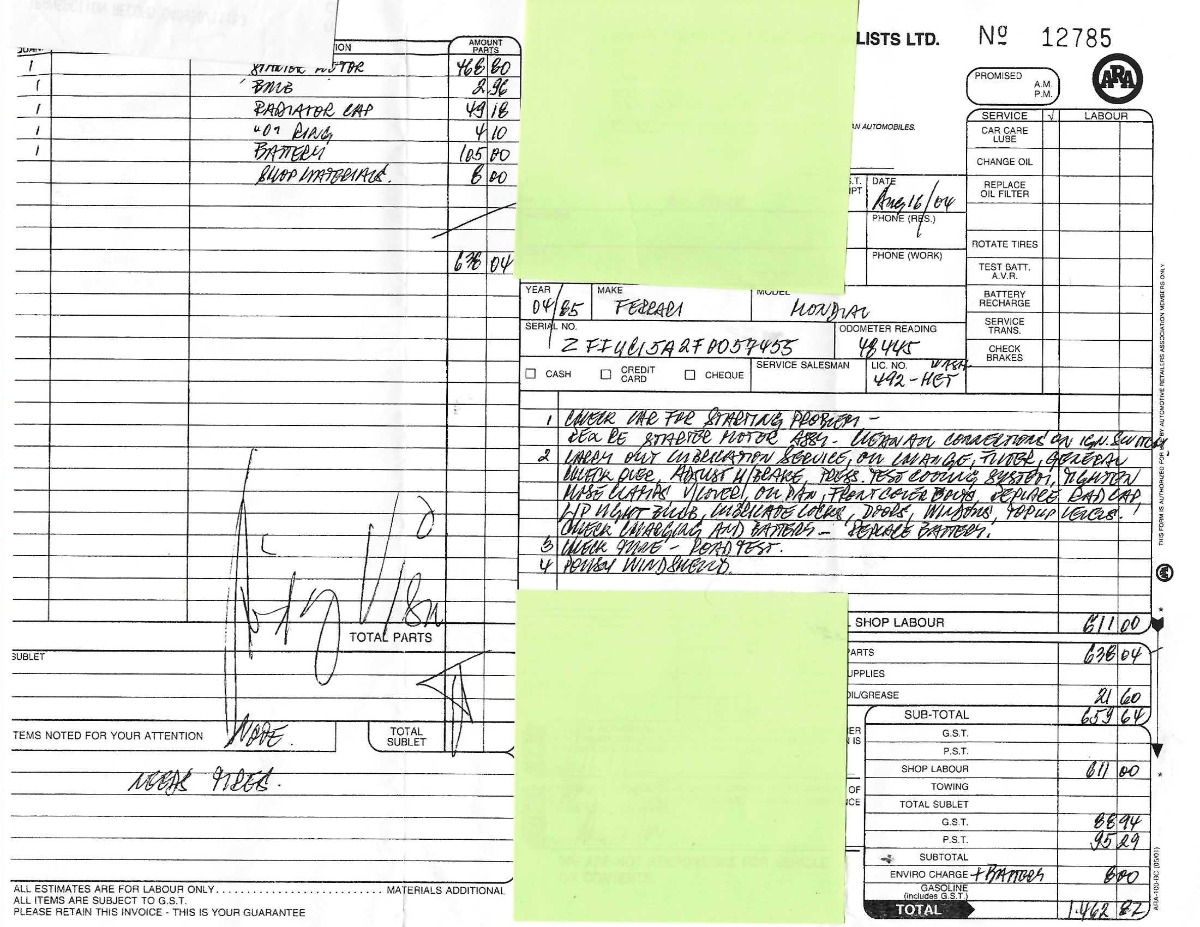 LISTS LTD. Nº 12785
PROMISED A.M. P.M.
ARA
AN AUTOMOBILES.
ION AMOUNT PARTS
1 STARTER MOTOR 468 80
1 BULB 2 96
1 RADIATOR CAP 49 18
1 "O" RING 4 10
1 BATTERY 105 00
SHOP MATERIALS. 8 00
638 04
SERVICE √ LABOUR
CAR CARE LUBE
CHANGE OIL
REPLACE OIL FILTER
ROTATE TIRES
TEST BATT. A.V.R.
BATTERY RECHARGE
SERVICE TRANS.
CHECK BRAKES
DATE Aug 16/04
PHONE (RES.)
PHONE (WORK)
YEAR 04/85 MAKE FERRARI MODEL MONDIAL
SERIAL NO. ZFFUC15A2F0057455 ODOMETER READING 48445
CASH CREDIT CARD CHEQUE SERVICE SALESMAN LIC. NO. WASH 492-HET
1 CHECK CAR FOR STARTING PROBLEM -
R & RE STARTER MOTOR ASSY - CLEAN ALL CONNECTIONS ON IGN. SWITCH
2 CARRY OUT LUBRICATION SERVICE, OIL CHANGE, FILTER, GENERAL
CHECK OVER, ADJUST H/BRAKE, PRESS. TEST COOLING SYSTEM, TIGHTEN
HOSE CLAMPS V/COVER, OIL PAN, FRONT COVER BOLTS, REPLACE RAD CAP
L/P LIGHT BULB, LUBRICATE LOCKS, DOORS, WINDOWS, TOP UP LEVELS.
CHECK CHARGING AND BATTERY - REPLACE BATTERY.
3 CHECK TUNE - ROAD TEST.
4 POLISH WINDSHIELD.
TOTAL PARTS
SUBLET
TOTAL SUBLET
TEMS NOTED FOR YOUR ATTENTION NOTE.
NEEDS TIRES.
ALL ESTIMATES ARE FOR LABOUR ONLY. MATERIALS ADDITIONAL
ALL ITEMS ARE SUBJECT TO G.S.T.
PLEASE RETAIN THIS INVOICE - THIS IS YOUR GUARANTEE
SHOP LABOUR 611 00
PARTS 638 04
UPPLIES
OIL/GREASE 21 60
SUB-TOTAL 659 64
G.S.T.
P.S.T.
SHOP LABOUR 611 00
TOWING
TOTAL SUBLET
G.S.T. 88 94
P.S.T. 95 29
SUBTOTAL
ENVIRO CHARGE + BATTERY 8 00
GASOLINE (includes G.S.T.)
TOTAL 1.462 87
THIS FORM IS AUTHORIZED FOR BY AUTOMOTIVE RETAILERS ASSOCIATION MEMBERS ONLY